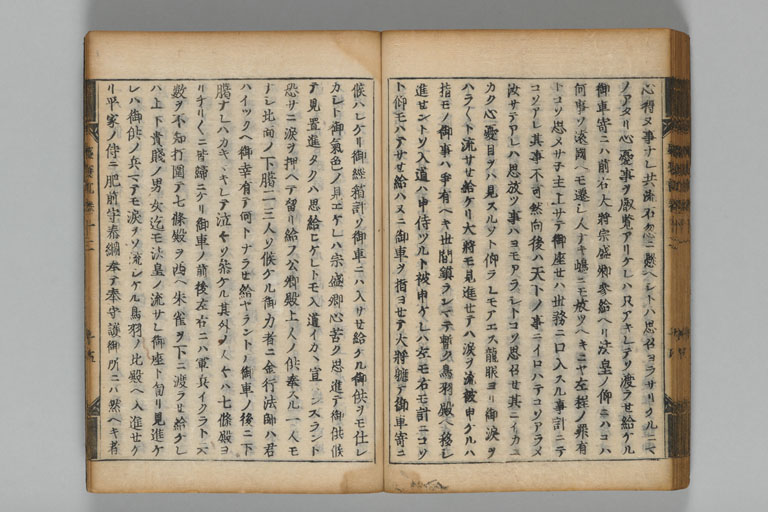 心得ヌ事ナレ共
ノアタリ心憂事ヲ叡覧アリケレハ只アキレテソ渡ラセ給ケル
御車寄ニハ前右大将宗盛卿参給ヘリ法皇ノ仰ニハコハ
何事ソ遠國ヘモ遷シ人ナキ嶋ニモ放ツヘキニヤ左程ノ罪有
トコソ思メサ子主上サテ御座セハ世務ニ口入スル事計ニテ
コソアレ其事不可然向後ハ天下ノ事ニイロハテコソアラメ
汝サテアレハ思放ツ事ハヨモアラシトコソ思召セ其ニイカニ
カク心憂目ヲハ見スルソト仰ラレモアエス龍眼ヨリ御涙ヲ
ハラ〱ト流サセ給ケリ大将モ見進セテハ涙ヲ流被申ケルハ
指モノ御事ハ争有ヘキ世間鎮ランマテ暫ク鳥羽殿ヘ移シ
進セントソ入道ハ申侍ツルト被申ケレハ左モ右モ計ニコソ
ト仰モハテサセ給ハヌニ御車ヲ指ヨセテ大将軈テ御車寄ニ
候ハレケリ御經箱計ソ御車ニハ入サセ給ケル御供ヲモ仕レ
カシト御氣色ノ見エケレハ宗盛卿心苦ク思進テ御供候
テ見置進タクハ思給ヒケレトモ入道イカヽ宣ンスラント
恐サニ涙ヲ押ヘテ留リ給フ公卿殿上人ノ供奉スル一人モ
ナシ北面ノ下臈二三人ソ候ケル御力者ニ金行法師ハ君
ハイツクヘ御幸有テ何トナラセ給ヤラントテ御車ノ後ニ下
臈ナレハカキ
リチリ〱ニ皆歸ニケリ御車ノ前後左右ニハ軍兵イクラト云
數ヲ不知打圍テ七條殿ヲ西ヘ朱雀ヲ下ニ渡ラセ給ケレ
ハ上下貴賤ノ男女迄モ法皇ノ流サレ御座トテ見進ケ
レハ御供ノ兵マテモ涙ヲソ流シケル鳥羽ノ北殿ヘ入進セケ
リ平家ノ侍ニ肥前守泰綱奉テ奉守護御所ニハ然ヘキ者